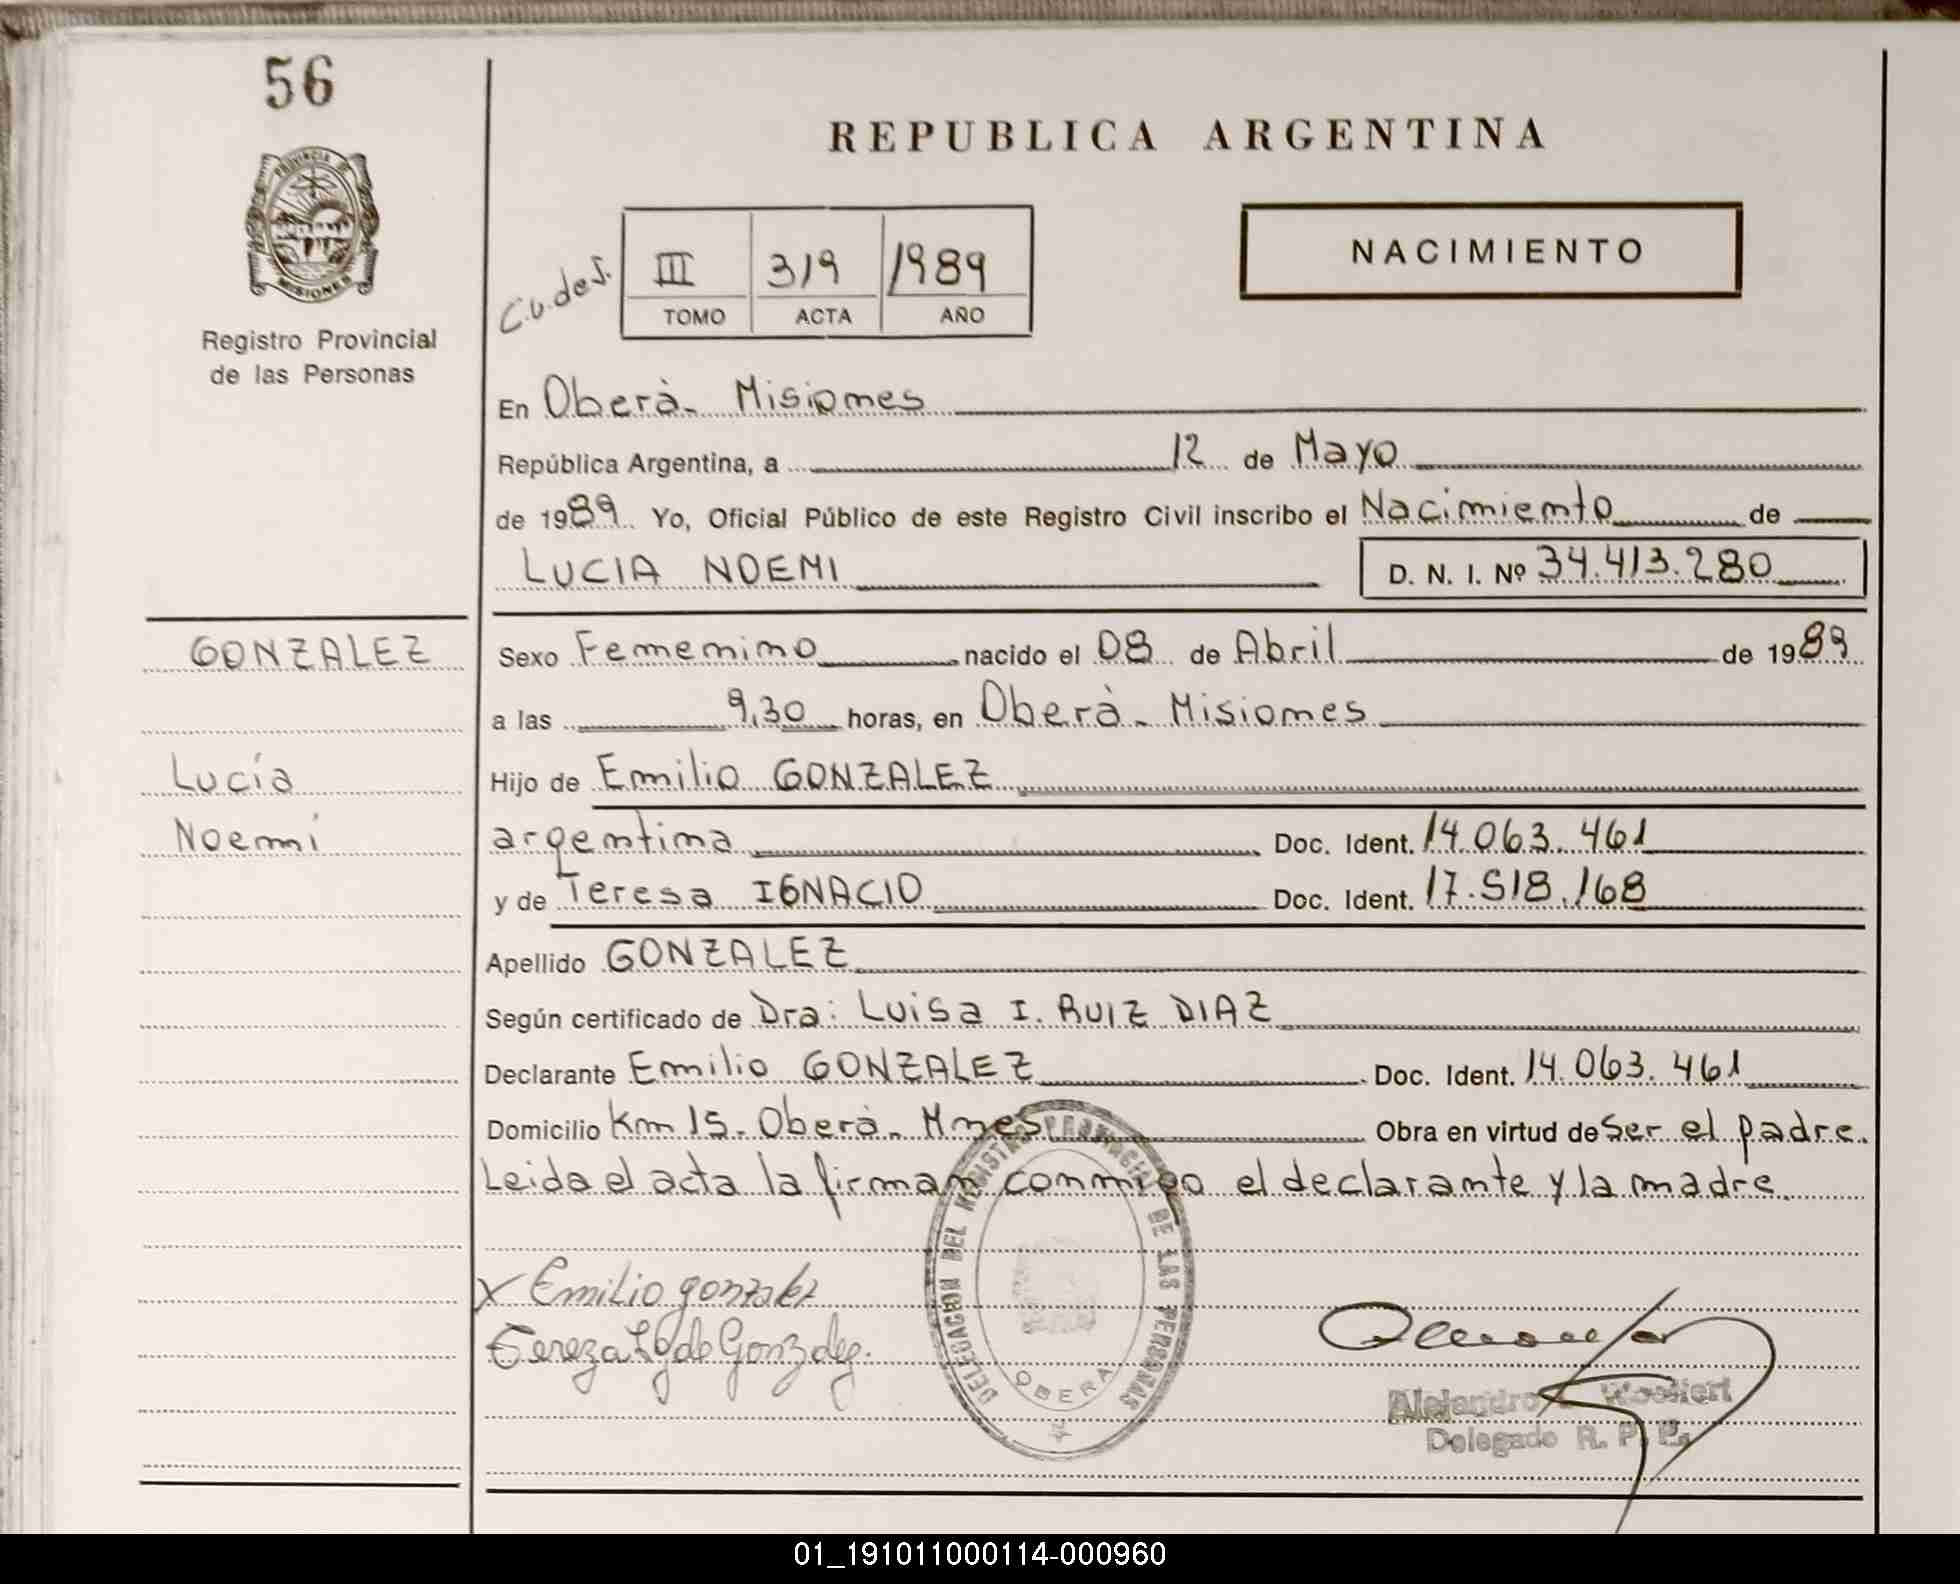 56
REPUBLICA ARGENTINA
PROVINCIA DE
MISIONES
Registro Provincial
de las Personas
C.v.des.
III 319 1989
TOMO ACTA AÑO
NACIMIENTO
En Oberà - Misiones
República Argentina, a 12 de Mayo
de 1989 Yo, Oficial Público de este Registro Civil inscribo el Nacimiento de
LUCIA NOEMI D. N. I. Nº 34.413.280
GONZALEZ
Sexo Femenino nacido el 08 de Abril de 1989
a las 9,30 horas, en Oberà - Misiones
Lucía
Hijo de Emilio GONZALEZ
Noemí
argentina Doc. Ident. 14.063.461
y de Teresa IGNACIO Doc. Ident. 17.518.168
Apellido GONZALEZ
Según certificado de Dra: Luisa I. RUIZ DIAZ
Declarante Emilio GONZALEZ Doc. Ident. 14.063.461
Domicilio Km 15. Oberà - Mnes Obra en virtud de ser el padre.
Leida el acta la firman conmigo el declarante y la madre.
DELEGACION DEL REGISTRO PROVINCIAL DE LAS PERSONAS
OBERA
x Emilio gonzalez
Tereza Ig de Gonzalez.
Alejandro
Delegado R. P. P.
01_191011000114-000960